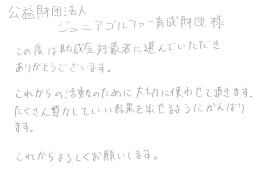 公益財団法人
ジュニアゴルファー育成財団 様
この度は助成金対象者に選んでいただき
ありがとうございます。
これからの活動のために大切に使わせて頂きます。
たくさん努力していい結果を出せるようにがんばり
ます。
これからよろしくお願いします。